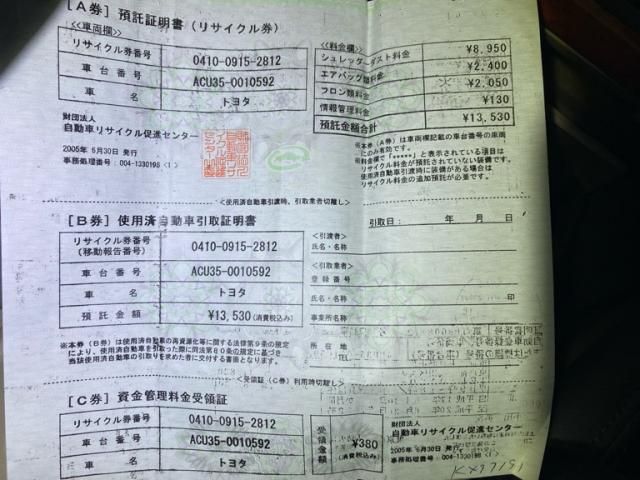 [A券] 預託証明書(リサイクル券)
<<車両欄>>
リサイクル券番号 0410-0915-2812
車台番号 ACU35-0010592
車名 トヨタ
<<料金欄>>
シュレッダーダスト料金 ¥8,950
エアバッグ類料金 ¥2,400
フロン類料金 ¥2,050
情報管理料金 ¥130
預託金額合計 ¥13,530
財団法人
自動車リサイクル促進センター
2005年 6月30日 発行
事務処理番号: 004-1330198 <1>
※本券(A券)は車両欄記載の車台番号の車両
にのみ有効です。
※料金欄で「*****」と表示されている項目は
リサイクル料金が預託されていない装備です。
使用済自動車引渡時に装備がある場合は
リサイクル料金の追加預託が必要です。
<使用済自動車引渡時、引取業者切離し>
[B券] 使用済自動車引取証明書
引取日: 年 月 日
リサイクル券番号
(移動報告番号) 0410-0915-2812
車台番号 ACU35-0010592
車名 トヨタ
預託金額 ¥13,530(消費税込み)
<引渡者>
氏名・名称
<引取業者>
登録番号
氏名・名称 印
事業所名称
所在地
TEL
※本券(B券)は使用済自動車の再資源化等に関する法律第9条の規定
により、使用済自動車を引取った際に同法第80条の規定に基づき
当該使用済自動車の引取りを求めた者に交付する書面となります。
<受領証(C券)利用時切離し>
[C券] 資金管理料金受領証
リサイクル券番号 0410-0915-2812
車台番号 ACU35-0010592
車名 トヨタ
受領金額 ¥380
(消費税込み)
財団法人
自動車リサイクル促進センター
2005年 6月30日 発行
事務処理番号: 004-1330198 <1>